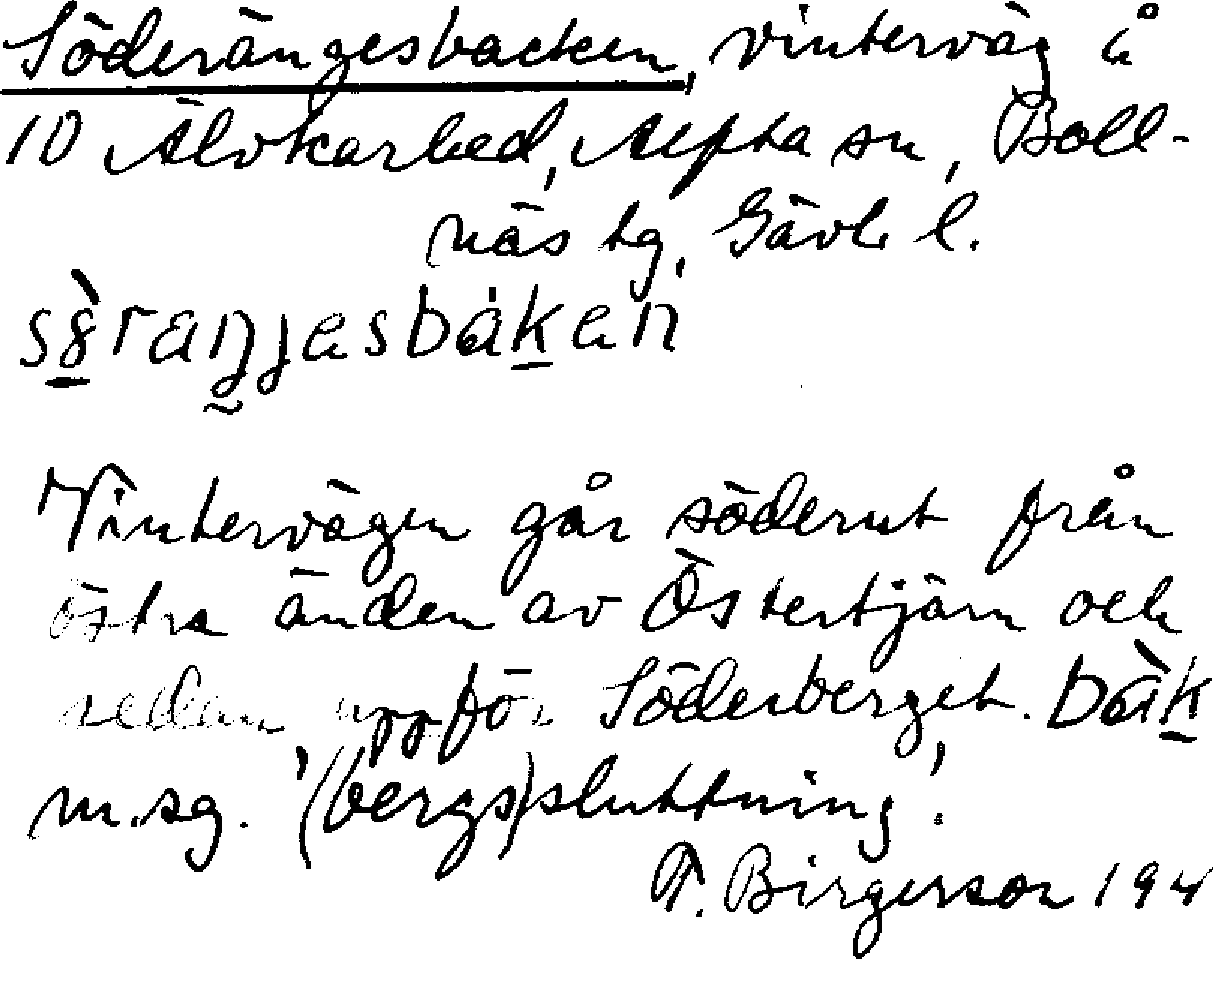 Söderängesbacken, vinterväg å
10 Älvkarhed, Alfta sn, Boll-
näs tg, Gävle l.
Vintervägen går söderut från
östra änden av Östertjärn och
sedan uppför Söderberget. bàk
m.sg. '(bergs)sluttning'.
T. Birgerson 194